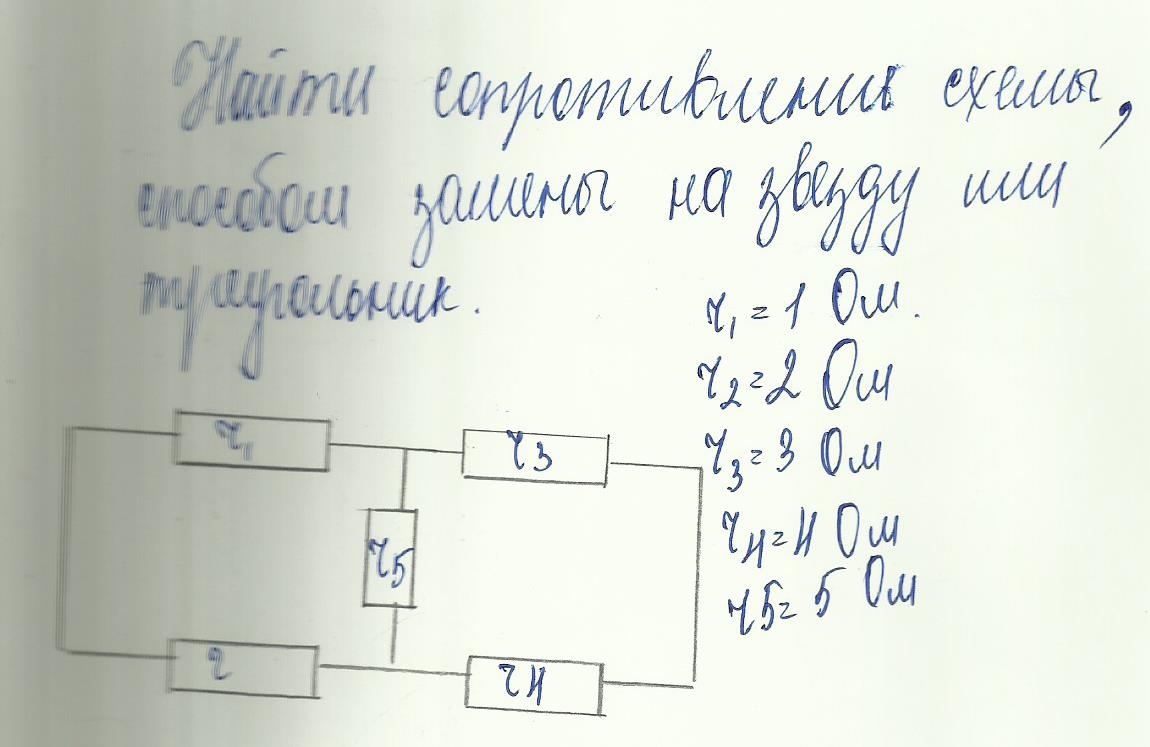 Найти сопротивления схемы,
способом замены на звезду или
треугольник.
r₁ = 1 Ом.
r₂ = 2 Ом
r₃ = 3 Ом
r₄ = 4 Ом
r5 = 5 Ом
r₁
r3
r5
r
r4